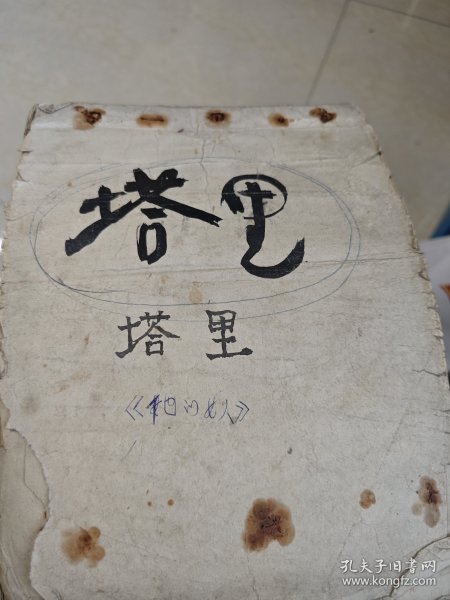 塔里
塔里
《塔里的女人》
孔夫子旧书网
www.kongfz.com